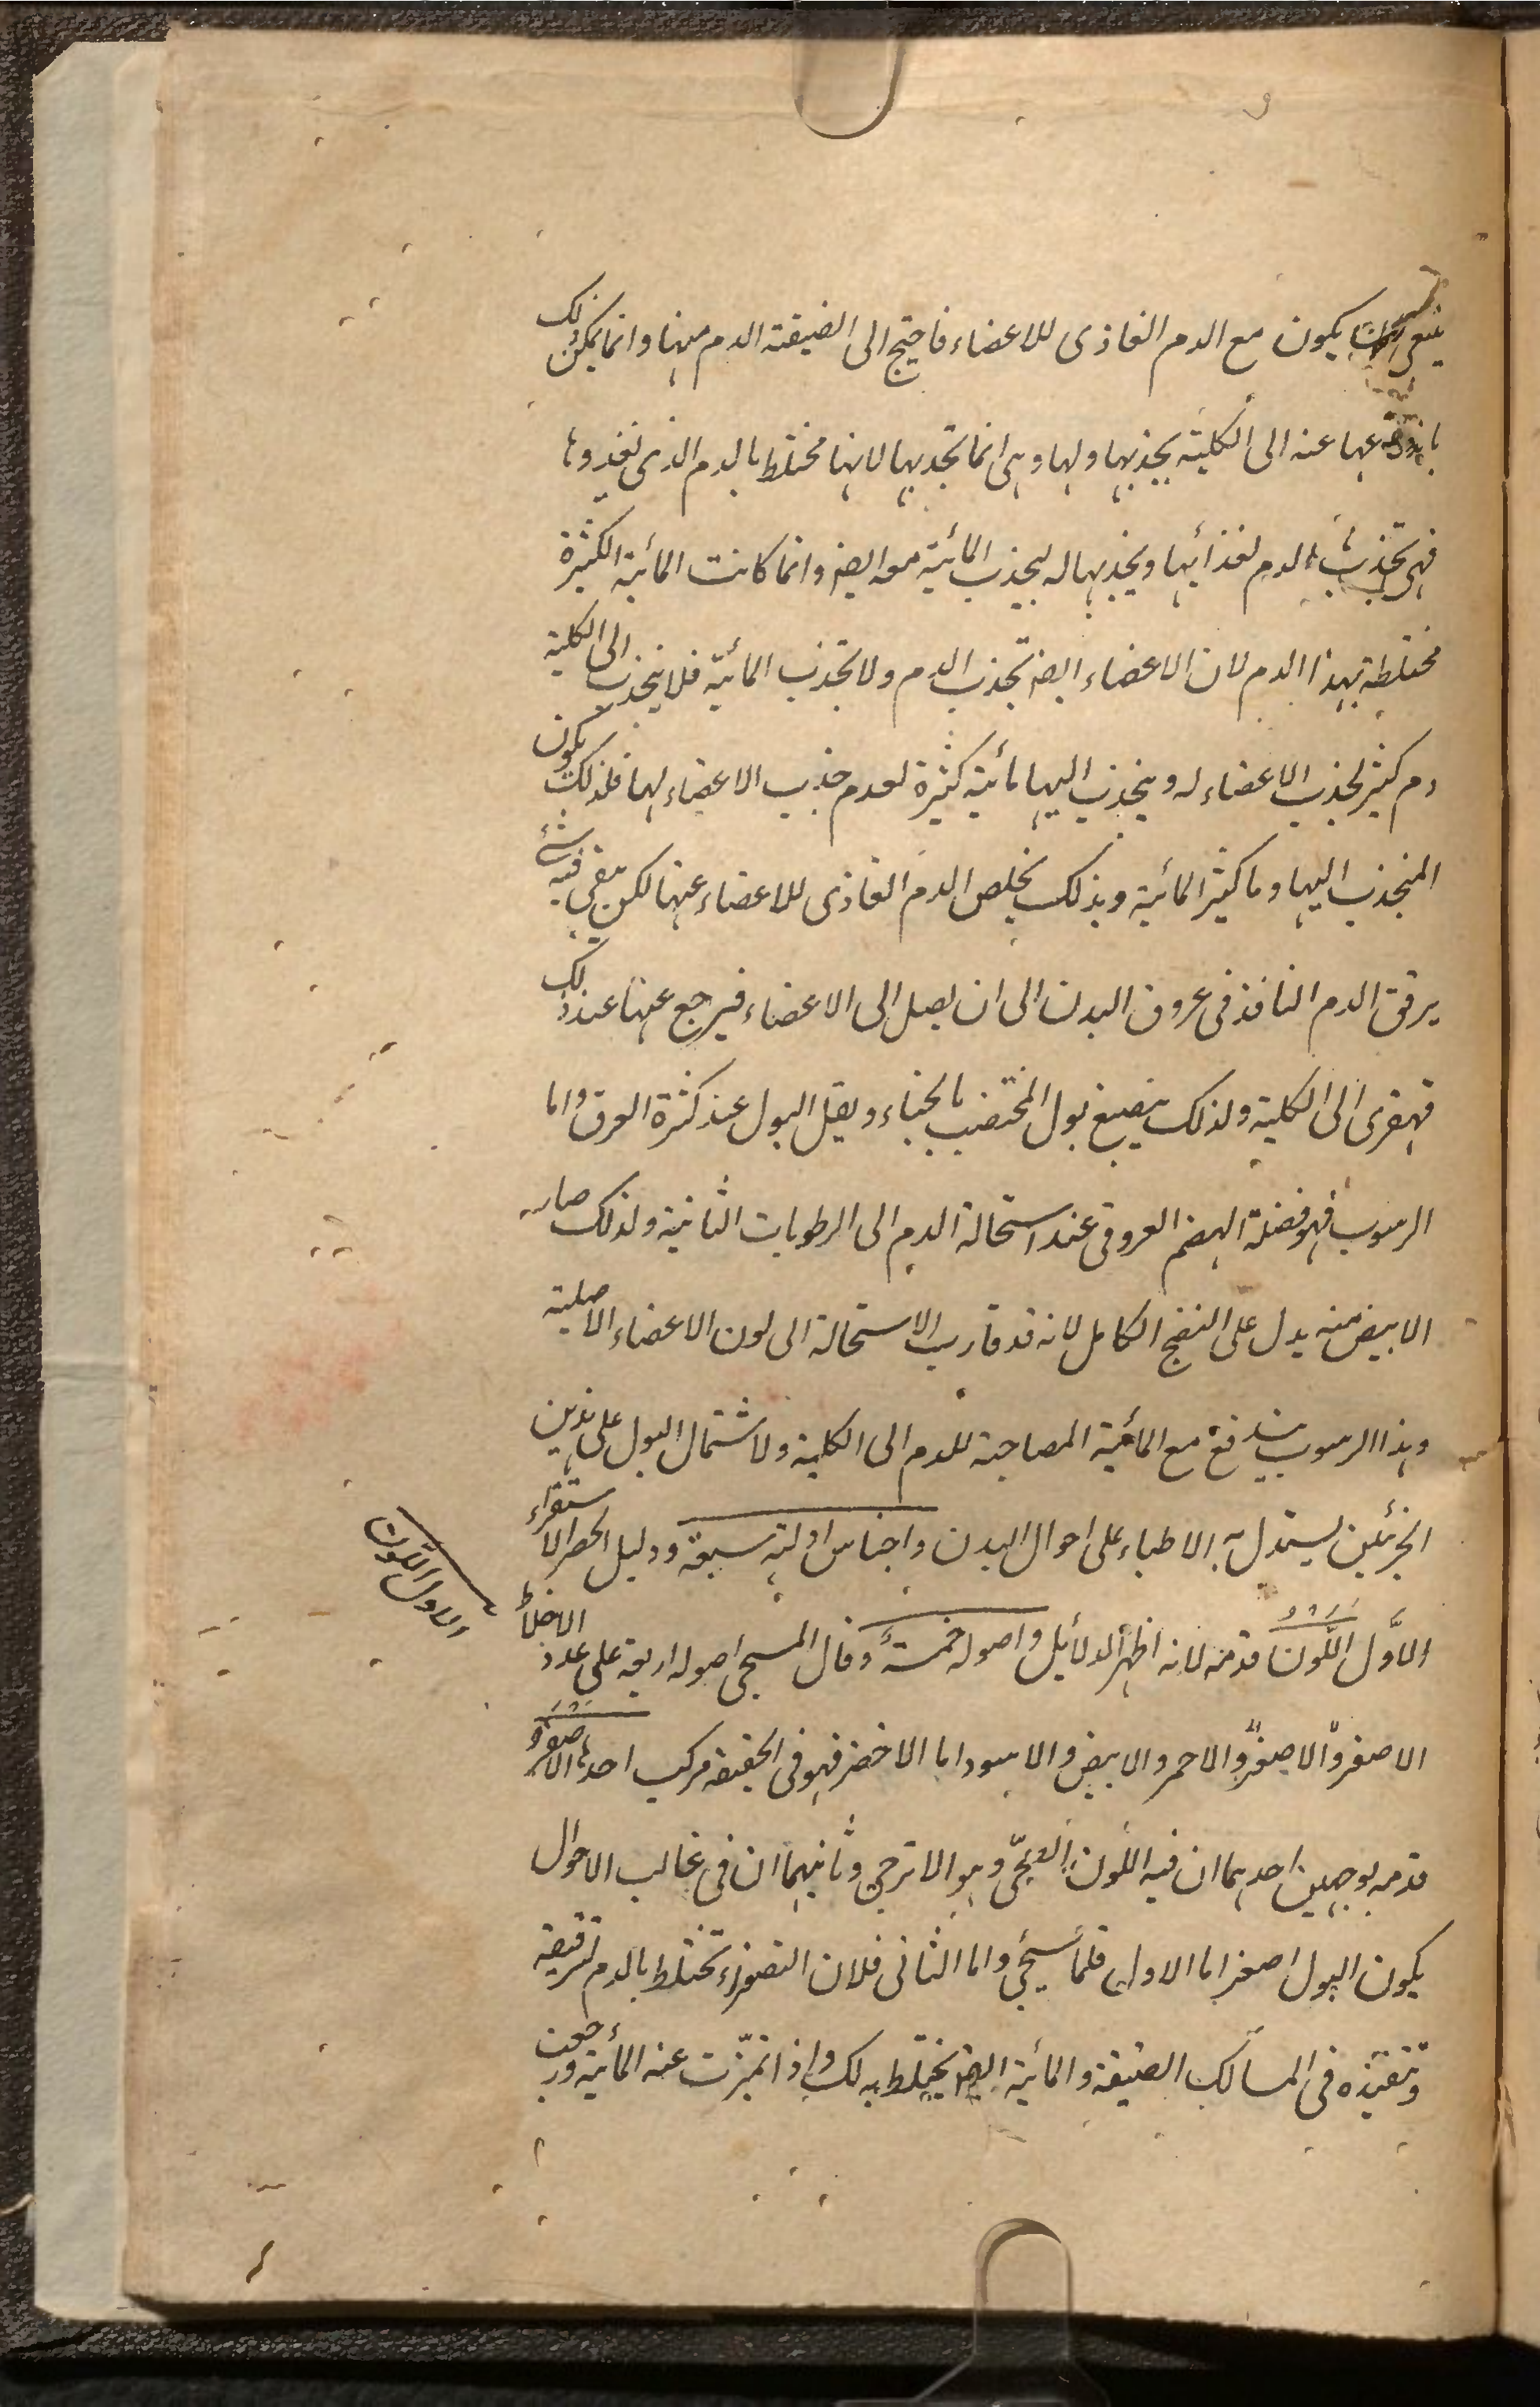 ينبغى ان يكون مع الدم الغاذى للاعضاء فاحتيج الى تصفية الدم منها وانما يمكن ذلك
باندفاعها عنه الى الكلية بجذبها ولها وهى انما تجذبها لانها مختلط بالدم الذى تغذوها
فهى تجذب الدم لغذائها وبجذبها له ليجذب المائية معه ايضا وانما كانت المائية الكثيرة
مختلطة بهذا الدم لان الاعضاء ايضا تجذب الدم ولا تجذب المائية فلا ينجذب الى الكلية
دم كثير لجذب الاعضاء له وينجذب اليها مائية كثيرة لعدم جذب الاعضاء لها فلذلك يكون
المنجذب اليها دما كثير المائية وبذلك يخلص الدم الغاذى للاعضاء عنها لكن يبقى فيه شئ
يرقق الدم النافذ فى عروق البدن الى ان يصل الى الاعضاء فيرجع عنها عند ذلك
قهقرى الى الكلية ولذلك ينصبغ بول المختضب بالحناء ويقل البول عند كثرة العرق واما
الرسوب فهو فضلة الهضم العروقى عند استحالة الدم الى الرطوبات الثانية ولذلك صار
الابيض منه يدل على النضج الكامل لانه قد قارب الاستحالة الى لون الاعضاء الاصلية
وهذا الرسوب يندفع مع المائية المصاحبة للدم الى الكلية ولاشتمال البول على هذين
الجزئين يستدل به الاطباء على احوال البدن واجناس ادلته سبعة ودليل الحصر الاستقراء
الاول اللون قدمه لانه اظهر الدلائل واصوله خمسة وقال المسيحى اصوله اربعة على عدد الاخلاط
الاول اللون
الاصفر والاحمر والابيض والاسود اما الاخضر فهو فى الحقيقة مركب احدها الاصفر و
قدمه بوجهين احدهما ان فيه اللون وهو الاترجى وثانيهما ان فى غالب الاحوال
يكون البول اصفر اما الاول فلما سيجئ واما الثانى فلان الصفراء تختلط بالدم لترقيقه
وتنفيذه فى المسالك الضيقة والمائية ايضا يختلط به لذلك واذا تميزت عنه المائية ورجعت